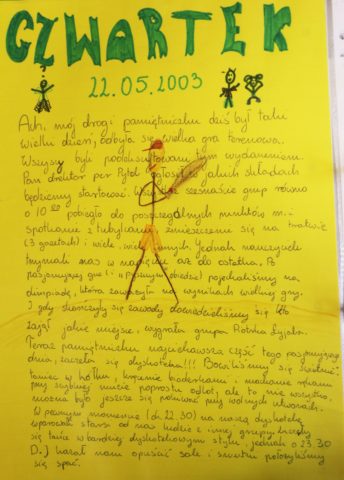 CZWARTEK
22.05.2003
Ach, mój drogi pamiętniczku dziś był taki
wielki dzień, odbyła się wielka gra terenowa.
Wszyscy byli podekscytowani tym wydarzeniem.
Pan dyrektor por Pytel w jakich składach
będziemy startować. szesnaście grup równo
o 10 pobiegło do poszczególnych punktów m.in
spotkanie z tubylcami, zmieszczenie się na tratwie
(3 gazetach) i wiele, wiele innych. Jednak nauczyciele
trzymali nas w napięciu aż do ostatka. Po
pasjonującej grze (i pysznym obiedzie) pojechaliśmy na
olimpiadę, która zaważyła na wynikach wielkiej gry.
I gdy skończyły się zawody dowiedzieliśmy się kto
zajął jakie miejsce, wygrała grupa Piotrka
Teraz pamiętniczku najciekawsza część tego pasjonującego
dnia, zaczęła się dyskoteka!!! Bawiliśmy się świetnie,
taniec w kółku, kręcenie bioderkami i machanie rękami
przy szybkiej muzie poprostu odloty ale to nie wszystko,
można było jeszcze się pokiwać przy wolnych utworach.
W pewnym momencie (ok. 22.30) na naszą dyskotekę
wparowali starsi od nas ludzie z innej grupy i zaczęły
się tańce w bardziej dyskotekowym stylu, jednak o 23.30
D.J kazał nam opuścić salę i smutni położyliśmy
się spać.